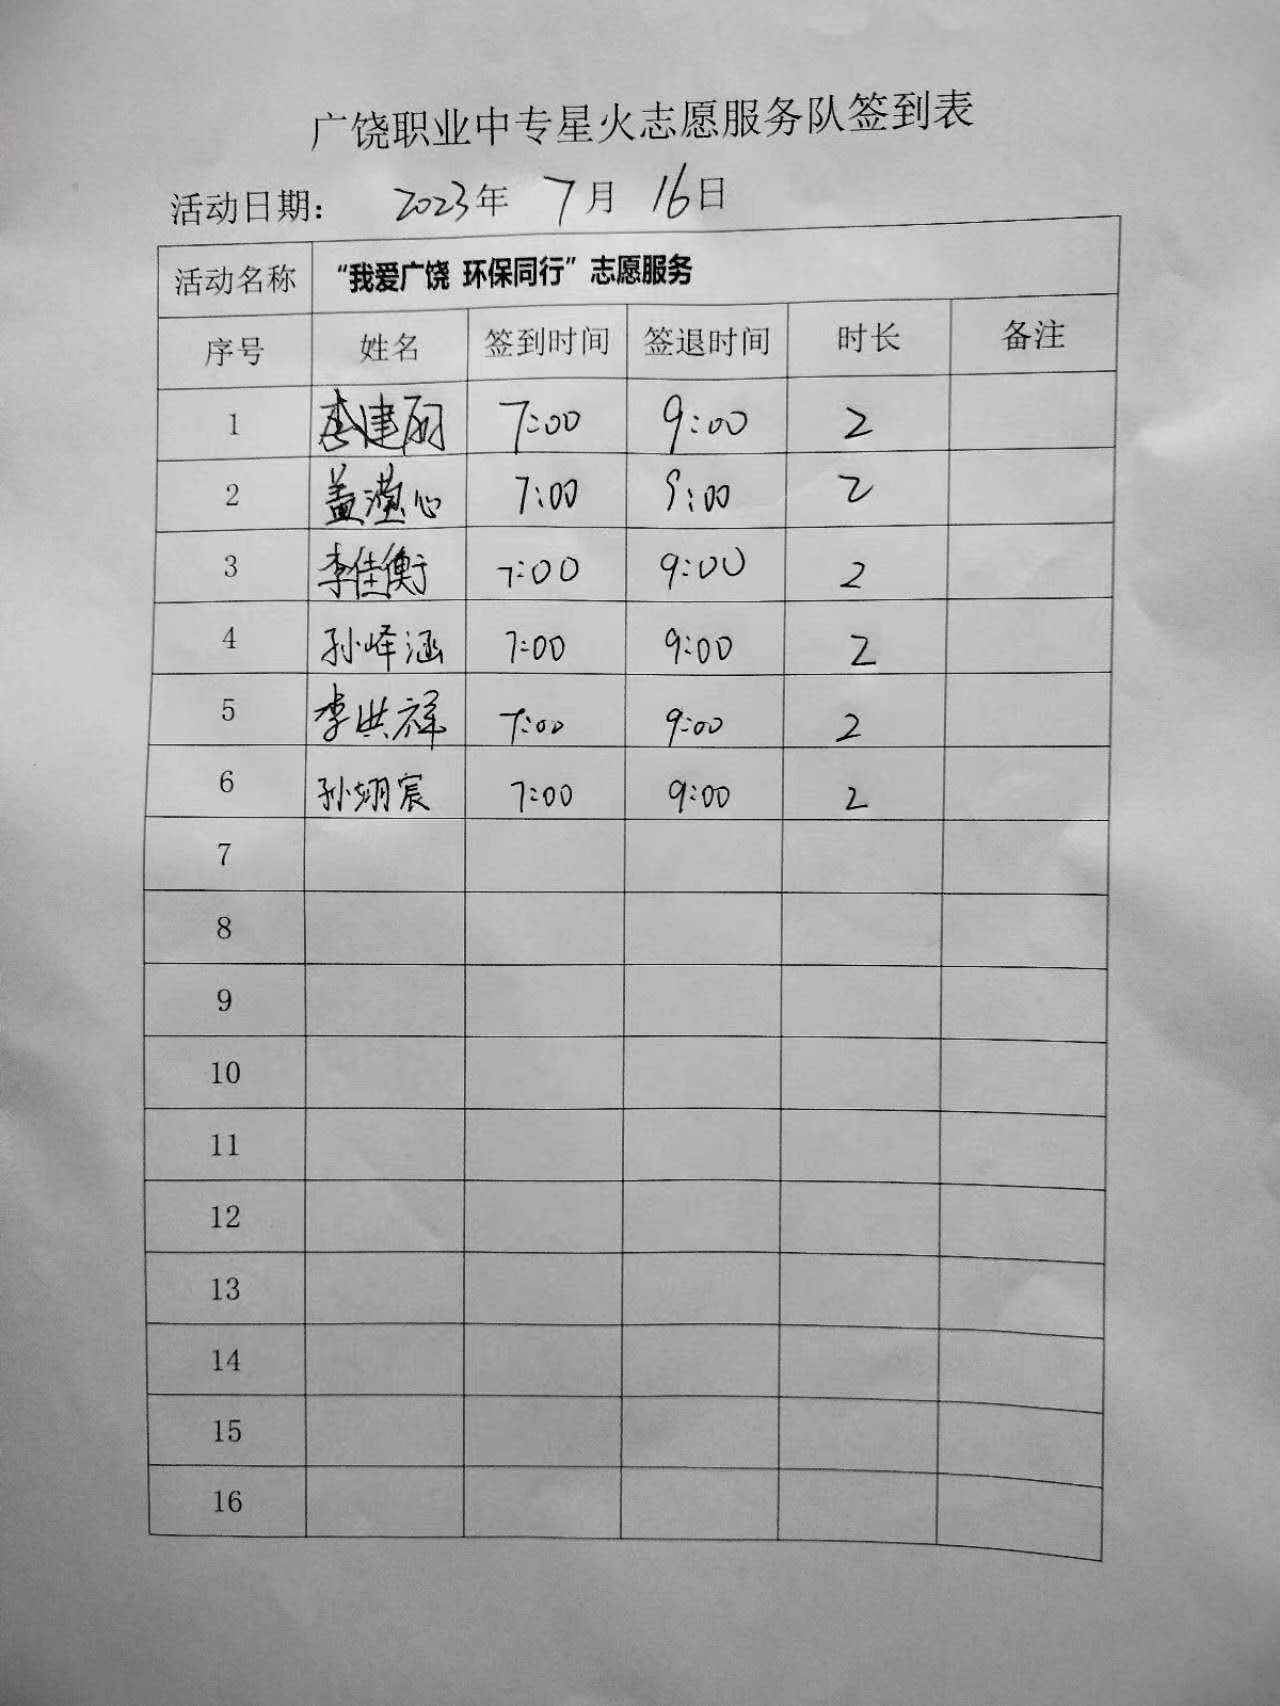 广饶职业中专星火志愿服务队签到表
活动日期： 2023年 7月 16日
活动名称 “我爱广饶 环保同行”志愿服务
序号 姓名 签到时间 签退时间 时长 备注
1 李建丽 7:00 9:00 2
2 盖滢心 7:00 9:00 2
3 李佳衡 7:00 9:00 2
4 孙峰涵 7:00 9:00 2
5 李洪祥 7:00 9:00 2
6 孙翊宸 7:00 9:00 2
7
8
9
10
11
12
13
14
15
16